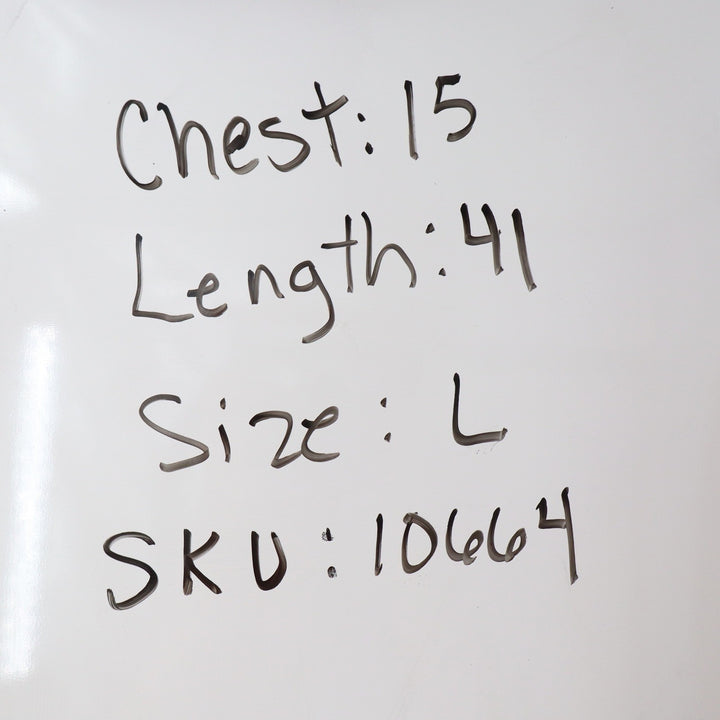 Chest: 15
Length: 41
Size: L
SKU: 10664